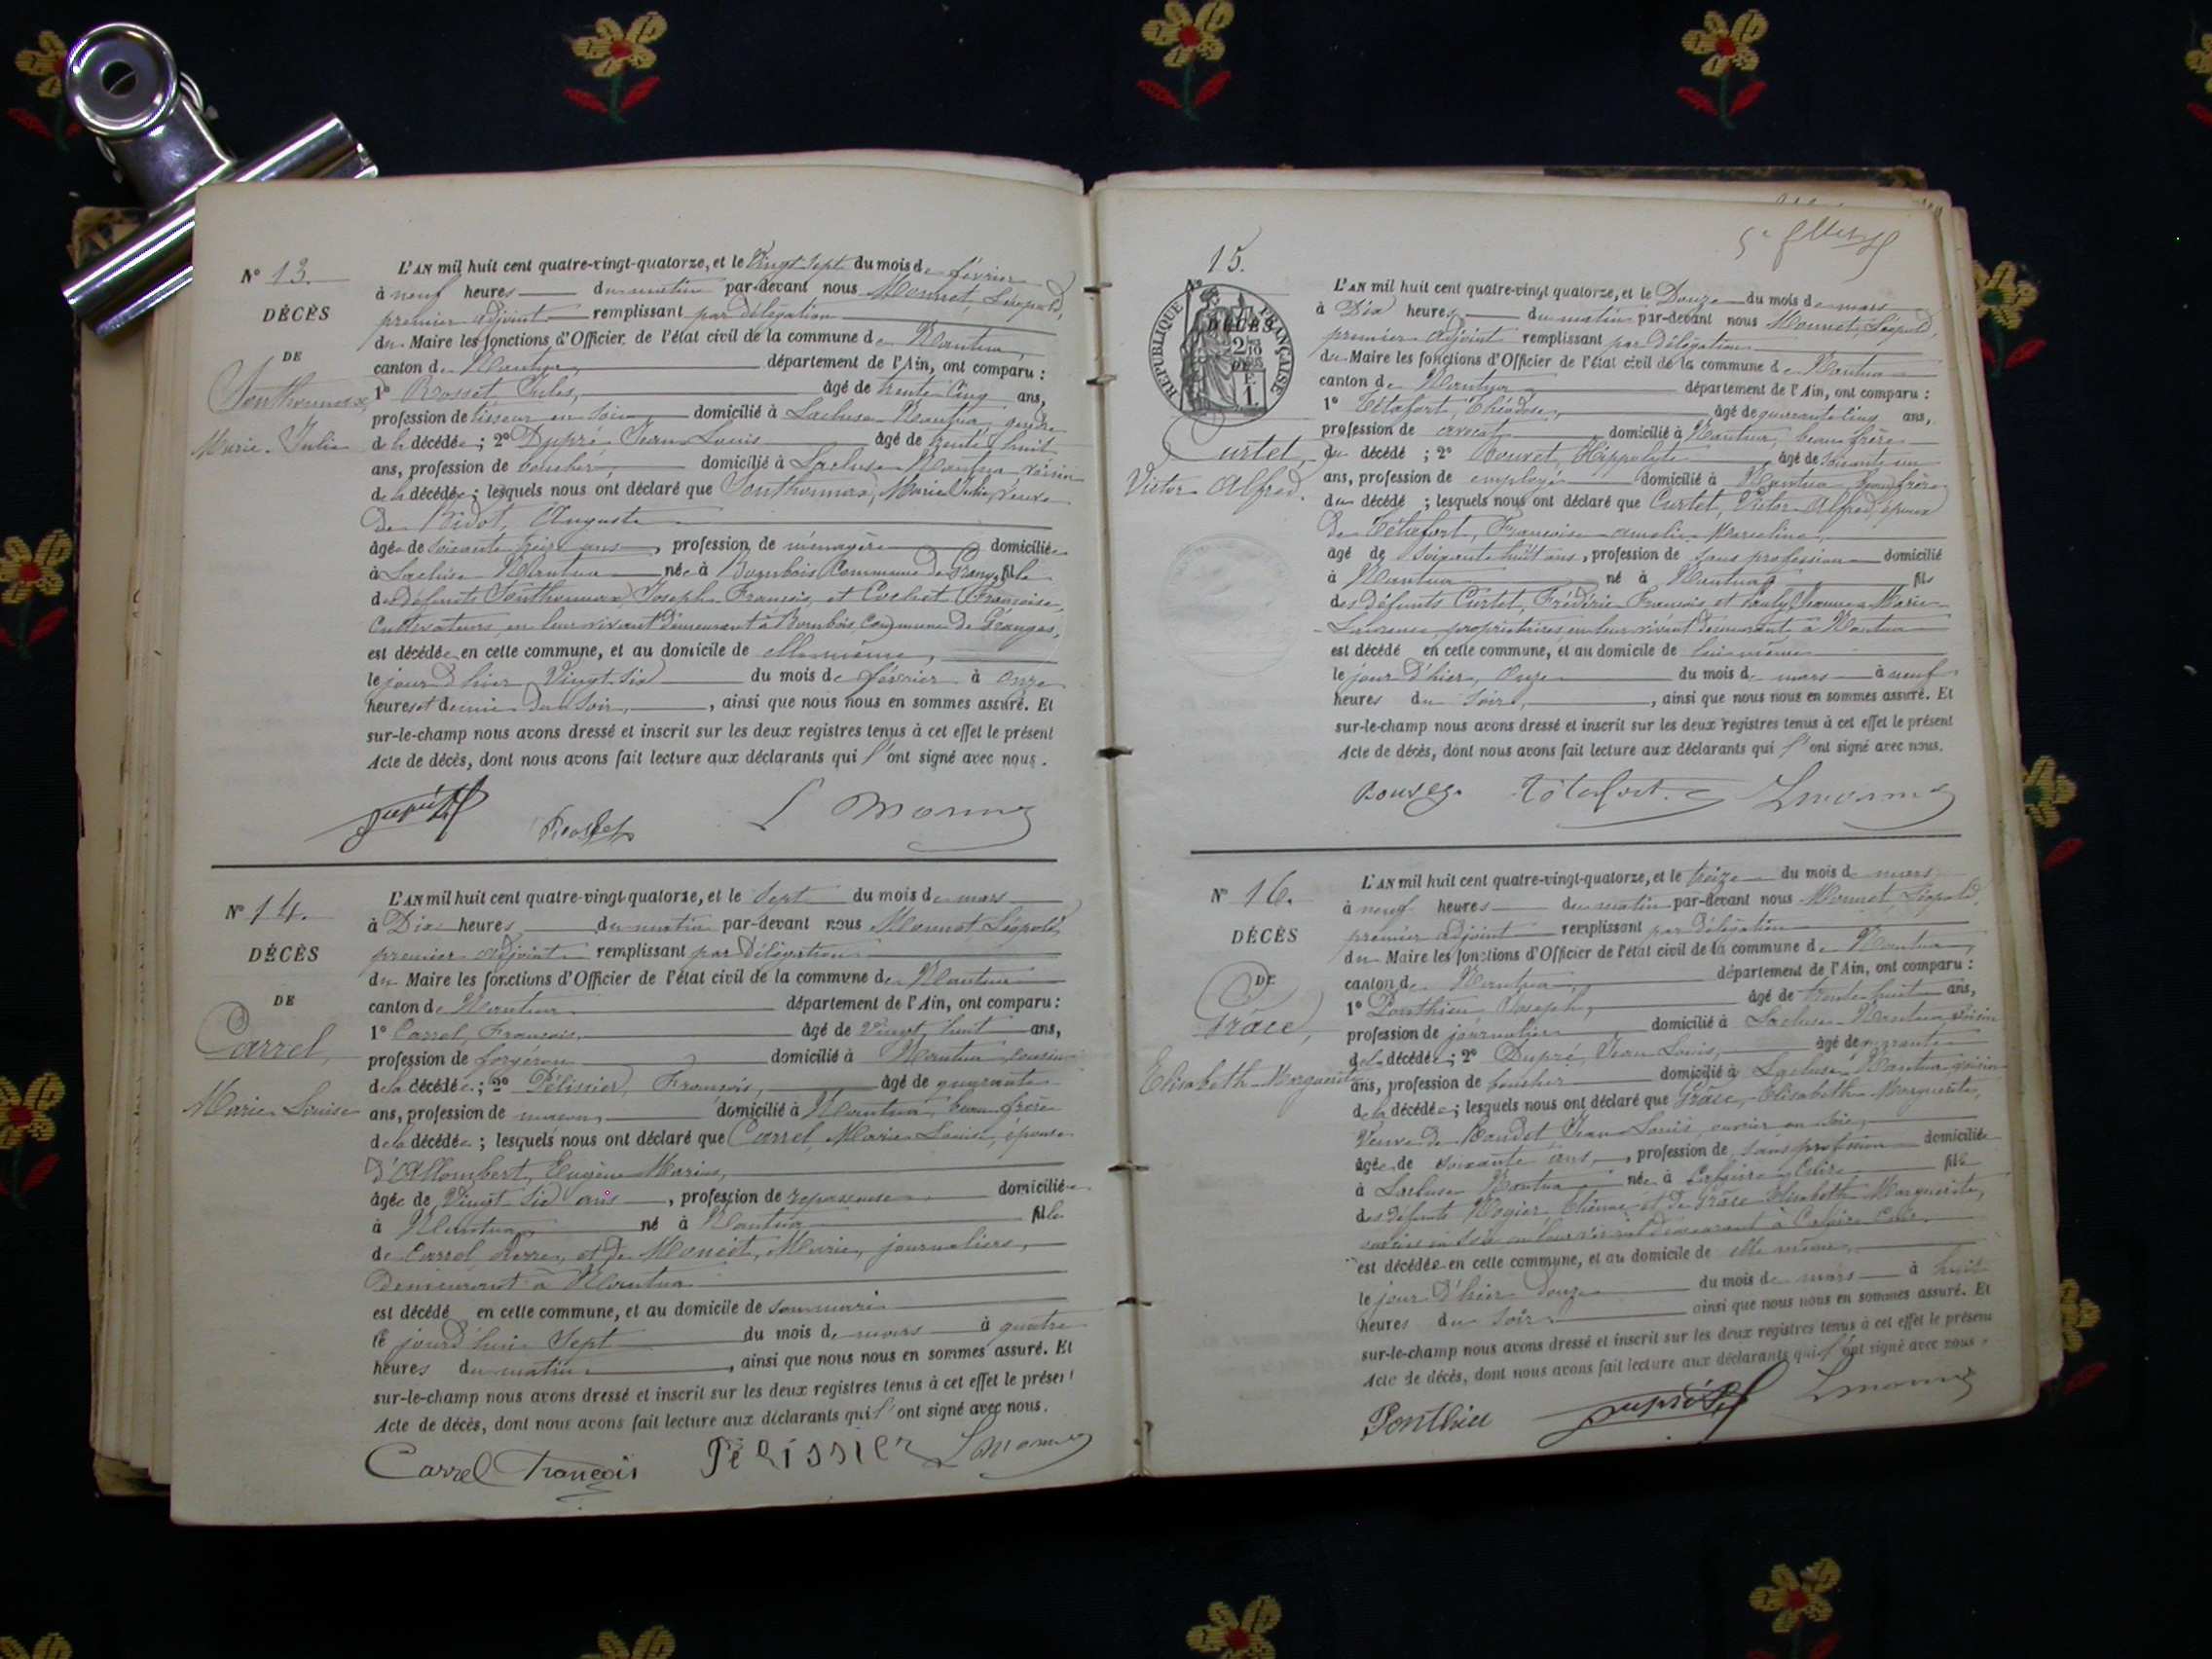 N° 13.
DÉCÈS
DE
Marie-Julie
L'AN mil huit cent quatre-vingt-quatorze, et le Vingt sept du mois de février
à neuf heures du matin par-devant nous Monnet, Léopold,
premier adjoint remplissant par délégation
du Maire les fonctions d'Officier de l'état civil de la commune de Nantua,
canton de Nantua, département de l'Ain, ont comparu :
1° Rosset Jules, âgé de trente cinq ans,
profession de tisseur en soie, domicilié à Lacluse Nantua, gendre
de la décédée ; 2° Dupré Jean Louis âgé de trente huit
ans, profession de boucher, domicilié à Lacluse Nantua voisin
de la décédée ; lesquels nous ont déclaré que Marie Julie, veuve
de Bidot, Auguste
âgée de soixante treize ans, profession de ménagère domiciliée
à Lacluse Nantua née à Bombois Commune de Granges, fille
des défunts Joseph François, et Cochet Françoise,
Cultivateurs, en leur vivant demeurant à Bombois, Commune de Granges,
est décédée en cette commune, et au domicile de elle même,
le jour d'hier Vingt-six du mois de février à onze
heures et demie du soir, ainsi que nous nous en sommes assuré. Et
sur-le-champ nous avons dressé et inscrit sur les deux registres tenus à cet effet le présent
Acte de décès, dont nous avons fait lecture aux déclarants qui l'ont signé avec nous.
Dupré JL Rosset L Monnet
N° 14.
DÉCÈS
DE
Carrel,
Marie Louise
L'AN mil huit cent quatre-vingt-quatorze, et le sept du mois de mars
à Dix heures du matin par-devant nous Monnet Léopold,
premier adjoint remplissant par délégation
du Maire les fonctions d'Officier de l'état civil de la commune de Nantua
canton de Nantua département de l'Ain, ont comparu :
1° Carrel, François, âgé de Vingt huit ans,
profession de forgeron domicilié à Nantua cousin
de la décédée ; 2° Pélissier, François, âgé de quarante
ans, profession de maçon, domicilié à Nantua, beau frère
de la décédée ; lesquels nous ont déclaré que Carrel, Marie Louise, épouse
d'Allombert, Eugène Marius,
âgée de Vingt six ans, profession de repasseuse domiciliée
à Nantua, né à Nantua fille
de Carrel Pierre, et de Marie, journaliers,
demeurant à Nantua
est décédé en cette commune, et au domicile de son mari
le jourd'hui Sept du mois de mars à quatre
heures du matin, ainsi que nous nous en sommes assuré. Et
sur-le-champ nous avons dressé et inscrit sur les deux registres tenus à cet effet le présent
Acte de décès, dont nous avons fait lecture aux déclarants qui l'ont signé avec nous.
Carrel François Pélissier L Monnet
15.
N°
RÉPUBLIQUE FRANÇAISE
DÉCÈS
DE
Curtet,
Victor Alfred.
L'AN mil huit cent quatre-vingt quatorze, et le Douze du mois de mars
à Dix heures du matin par-devant nous Monnet, Léopold,
premier adjoint remplissant par délégation
du Maire les fonctions d'Officier de l'état civil de la commune de Nantua
canton de Nantua département de l'Ain, ont comparu :
1° Tétafort, Théodose, âgé de quarante cinq ans,
profession de avocat domicilié à Nantua, beau frère
du décédé ; 2° Bouvet, Hippolyte, âgé de soixante un
ans, profession de employé domicilié à Nantua, beau frère
du décédé ; lesquels nous ont déclaré que Curtet, Victor Alfred, époux
de Tétafort, Françoise Amélie Marceline,
âgé de soixante huit ans, profession de sans profession domicilié
à Nantua né à Nantua, fils
des défunts Curtet, Frédéric François et Jeanne Marie
Laurence, propriétaires en leur vivant demeurant à Nantua
est décédé en cette commune, et au domicile de lui même
le jour d'hier, Onze du mois de mars à neuf
heures du soir, ainsi que nous nous en sommes assuré. Et
sur-le-champ nous avons dressé et inscrit sur les deux registres tenus à cet effet le présent
Acte de décès, dont nous avons fait lecture aux déclarants qui l'ont signé avec nous.
Bouvet Tétafort L Monnet
N° 16.
DÉCÈS
DE
Grâce,
Elisabeth Marguerite
L'AN mil huit cent quatre-vingt-quatorze, et le treize du mois de mars
à neuf heures du matin par-devant nous Monnet Léopold,
premier adjoint remplissant par délégation
du Maire les fonctions d'Officier de l'état civil de la commune de Nantua,
canton de Nantua, département de l'Ain, ont comparu :
1° Ponthieu Joseph, âgé de trente huit ans,
profession de journalier, domicilié à Lacluse Nantua voisin
de la décédée ; 2° Dupré, Jean Louis, âgé de quarante
ans, profession de boucher domicilié à Lacluse Nantua voisin
de la décédée ; lesquels nous ont déclaré que Grâce, Elisabeth Marguerite,
Veuve de Baudet Jean Louis, ouvrier en soie,
âgée de soixante ans, profession de sans profession domiciliée
à Lacluse Nantua née à fille
des défunts Nogier Etienne et de Grâce Elisabeth Marguerite,
en leur vivant demeurant à
est décédée en cette commune, et au domicile de elle même,
le jour d'hier douze du mois de mars à huit
heures du soir ainsi que nous nous en sommes assuré. Et
sur-le-champ nous avons dressé et inscrit sur les deux registres tenus à cet effet le présent
Acte de décès, dont nous avons fait lecture aux déclarants qui l'ont signé avec nous.
Ponthieu Dupré JL L Monnet